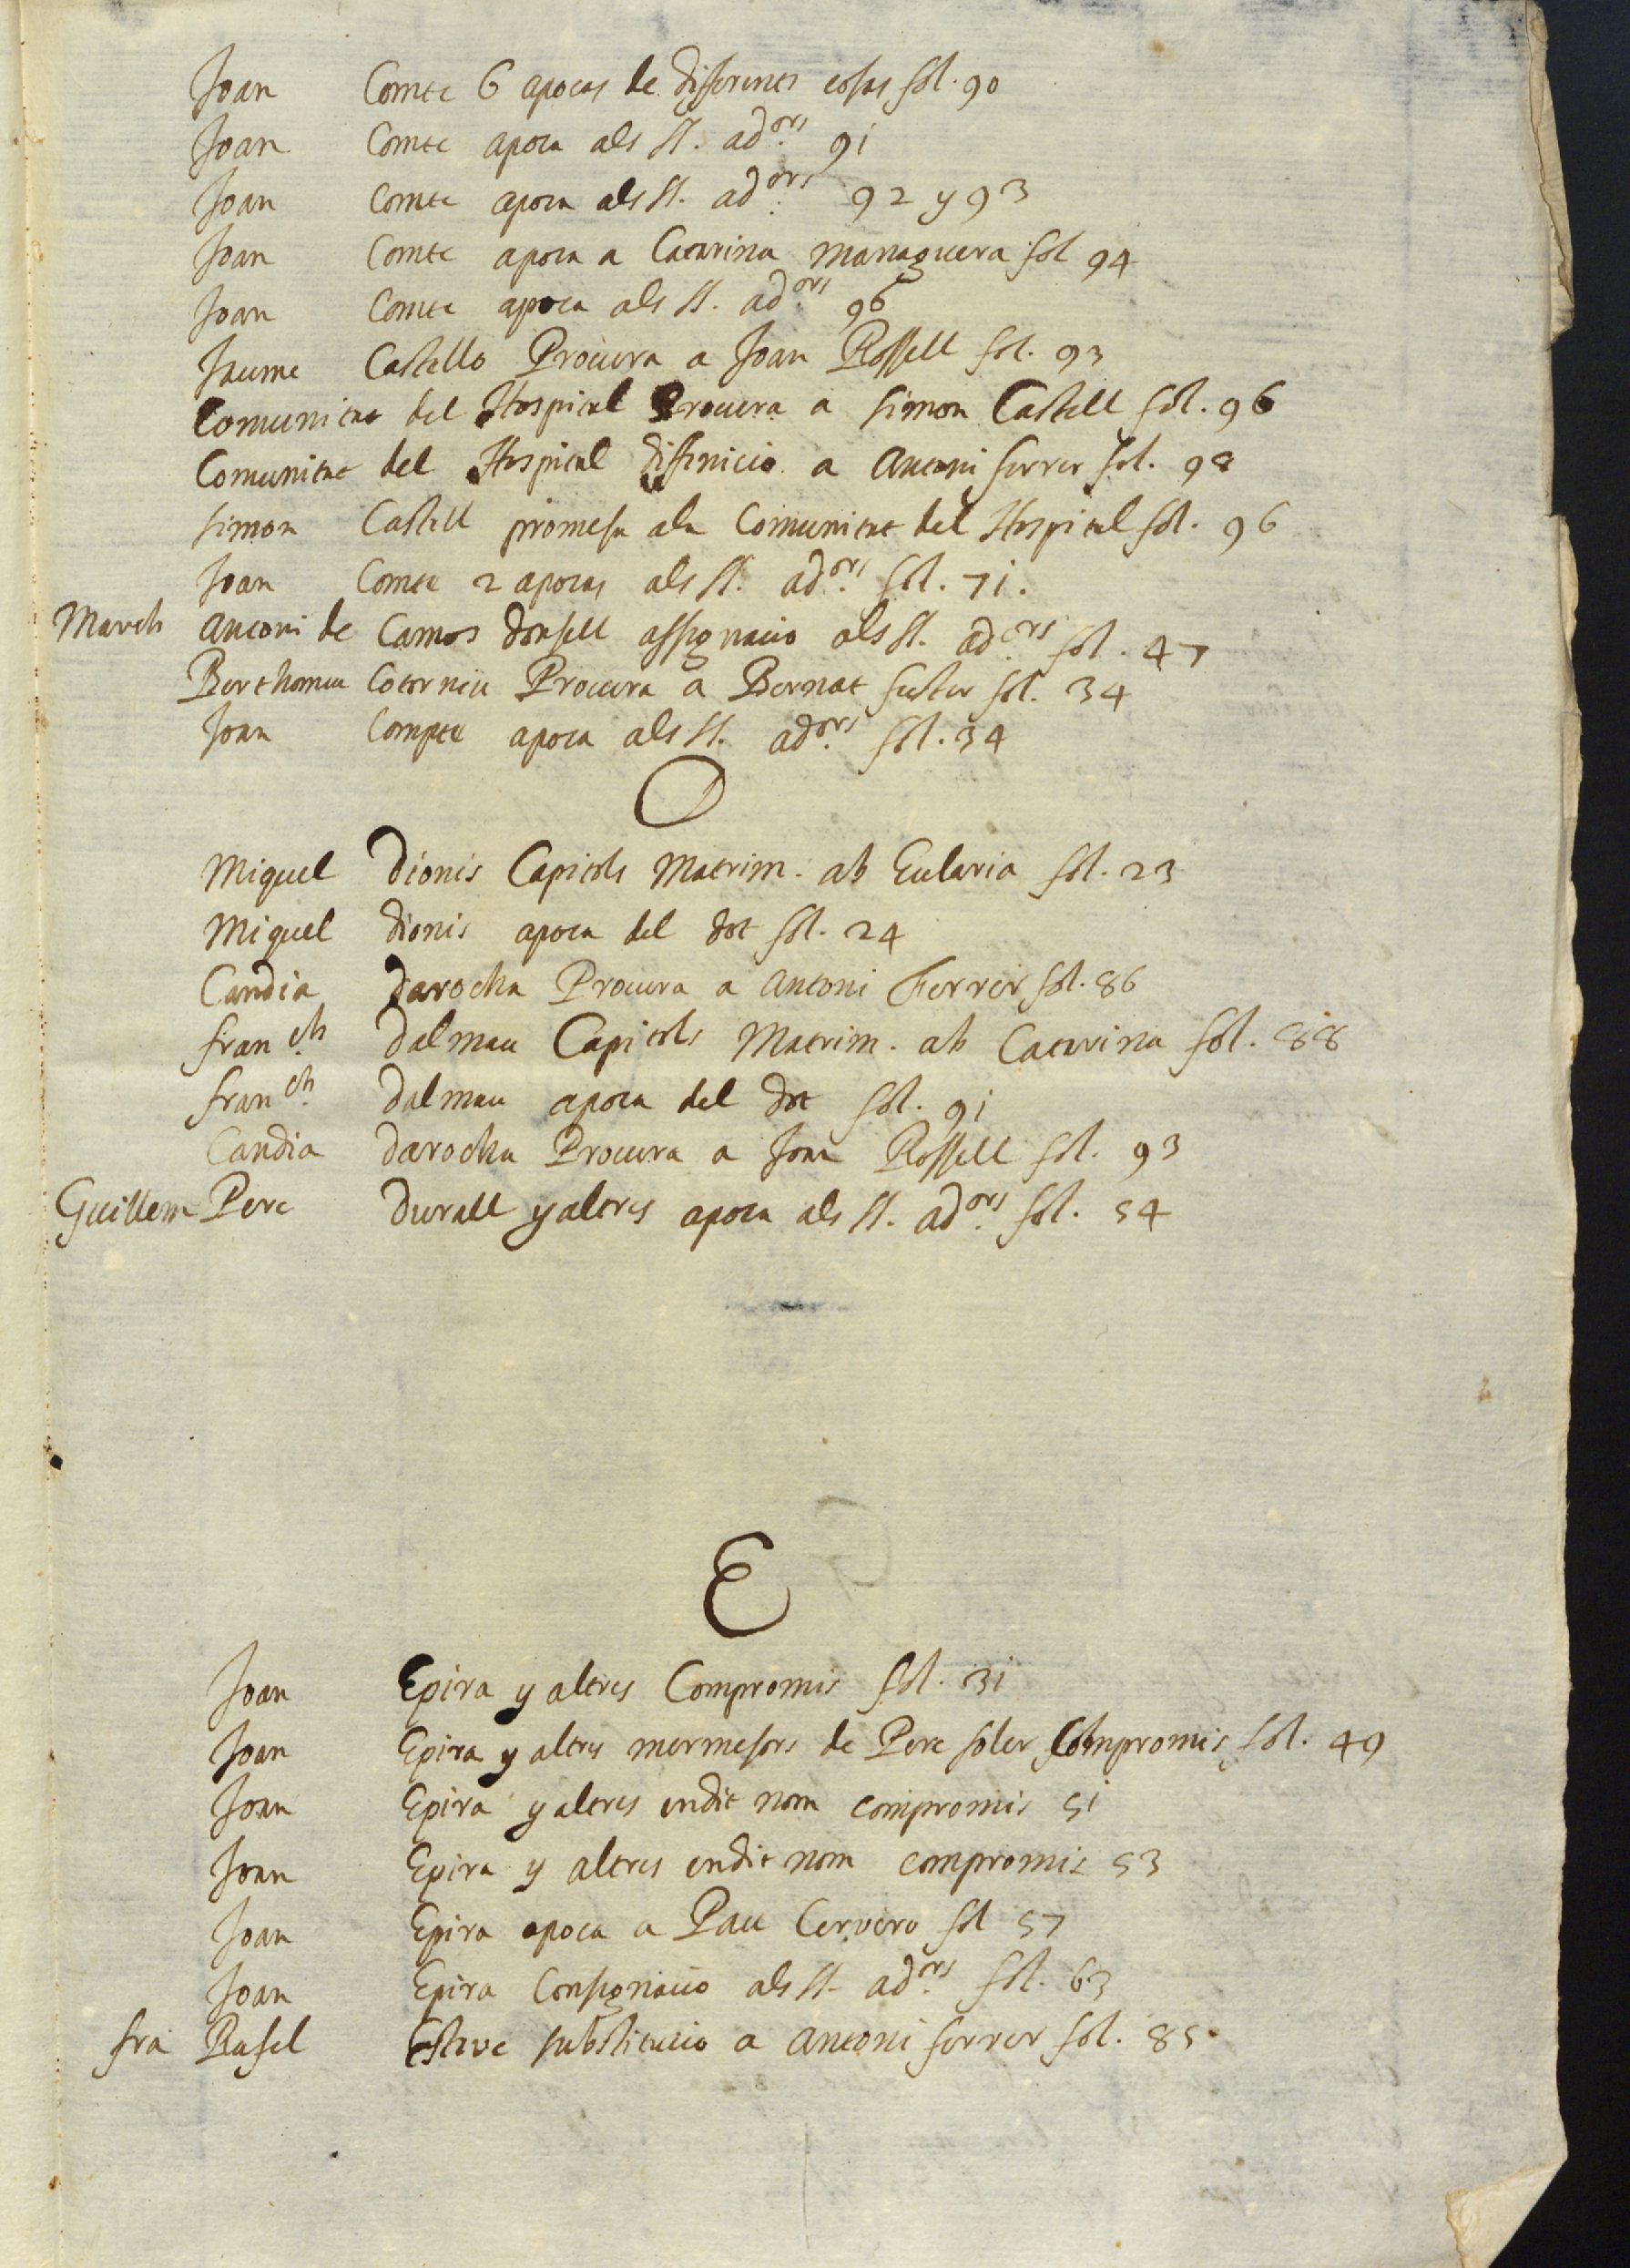 Joan Comte 6 apocas de differents cosas fol. 90
Joan Comte apoca als ss. ad.ors 91
Joan Comte apoca als ss. ad.ors 92 y 93
Joan Comte apoca a Catarina managuera fol 94
Joan Comte apoca als ss. ad.ors 96
Jaume Castello Procura a Joan Rossell fol. 93
Comunitat del Hospital Procura a simon Castell fol. 96
Comunitat del Hospital diffinicio a Antoni ferrer fol. 98
simon Castell promesa ala Comunitat del Hospital fol. 96
Joan Comte 2 apocas als ss. ad.ors fol. 71.
March Antoni de Camos donsell assignacio als ss. ad.ors fol. 47
Berthomeu Cotorniu Procura a Bernat fuster fol. 34
Joan Compte apoca als ss. ad.ors fol. 34
D
Miquel Dionis Capitols Matrim. ab Eularia fol. 23
Miquel dionis apoca del dot fol. 24
Candia Darocha Procura a Antoni Ferrer fol. 86
fran.ch Dalmau Capitols Matrim. ab Catarina fol. 88
fran.ch Dalmau apoca del dot fol. 91
Candia Darocha Procura a Joan Rossell fol. 93
Guillem Pere Durall y altres apoca als ss. ad.ors fol. 54
E
Joan Epira y altres Compromis fol. 31
Joan Epira y altres mermesors de Pere soler Compromis fol. 49
Joan Epira y altres endit nom compromis 51
Joan Epira y altres endit nom compromis 53
Joan Epira apoca a Pau Cervero fol 57
Joan Epira Consignacio als ss. ad.ors fol. 63
fra Rafel Esteve substitucio a Antoni ferrer fol. 85